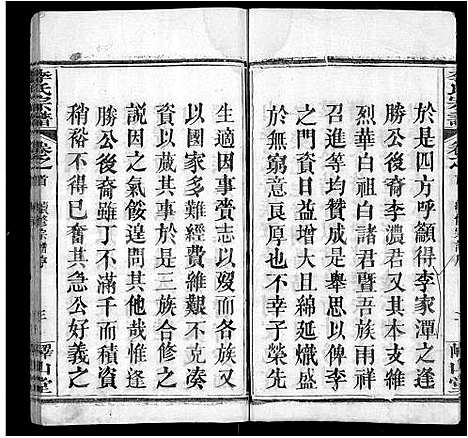 李氏宗譜
卷之首
於是四方呼籲得李家潭之逢
勝公後裔李濃君以其本支耀
烈華白祖白諸君暨吾族人士
召進等均贊成是舉思以俾李
之門資日益增大且綿延熾盛
於無窮寓意良厚也不幸子榮先
生適因事賫志以歿而各族人
以國家多難經費維艱不克湊
資以蕆其事於是三族合修之
說因之氣餒遑問其他哉惟逢
勝公後裔雖丁不滿千而積資
稍裕不得已奮其急公好義之
李氏宗譜
卷之首
續修宗譜序
三
嶧山堂